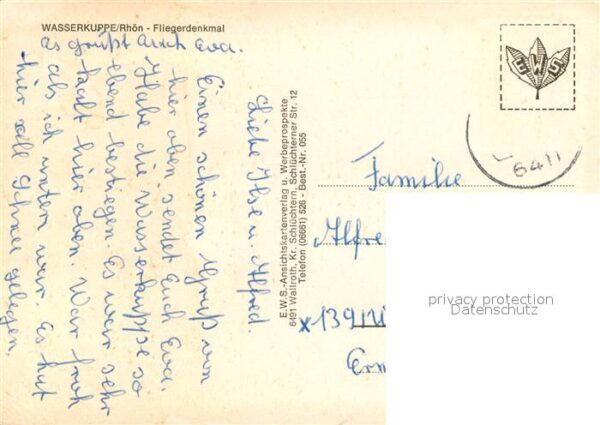 WASSERKUPPE/Rhön - Fliegerdenkmal
Es grüßt auch Eva.
Liebe Ilse u. Alfred.
Einen schönen Gruß von
hier oben sendet Euch Eva.
Habe die Wasserkuppe so
ebend bestiegen. Es war sehr
kalt hier oben. War froh
als ich unten war. Es hat
hier voll Schnee gelegen.
E.W.S.-Ansichtskartenverlag u. Werbeprospekte
6491 Wallroth, Kr. Schlüchtern, Schlüchterner Str. 12
Telefon (06661) 526 - Best.-Nr. 055
EWS
6411
Familie
Alfre
x1391
Erm
privacy protection
Datenschutz